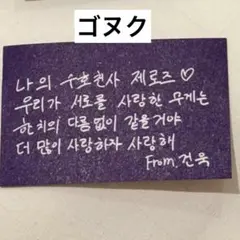 ゴヌク
나의 수호천사 제로즈♡
우리가 서로를 사랑한 무게는
한 치의 다름없이 같을거야
더 많이 사랑하자 사랑해
From. 건욱